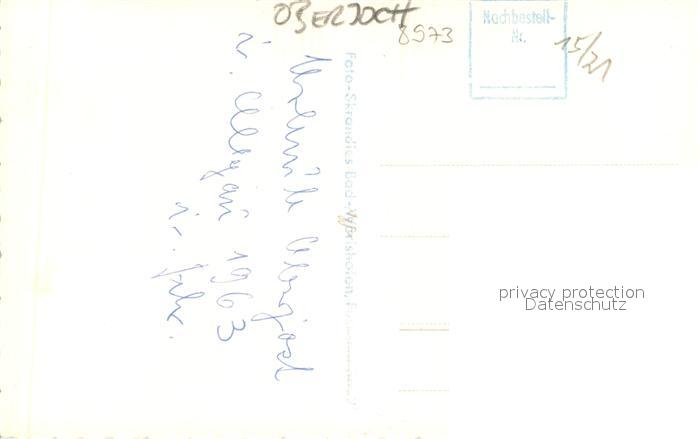 OBERJOCH
8973
Nachbestell-
Nr.
15/21
Foto-Skrandies Bad-Wörishofen,
Oberjoch
i. Allgäu 1963
i.
privacy protection
Datenschutz